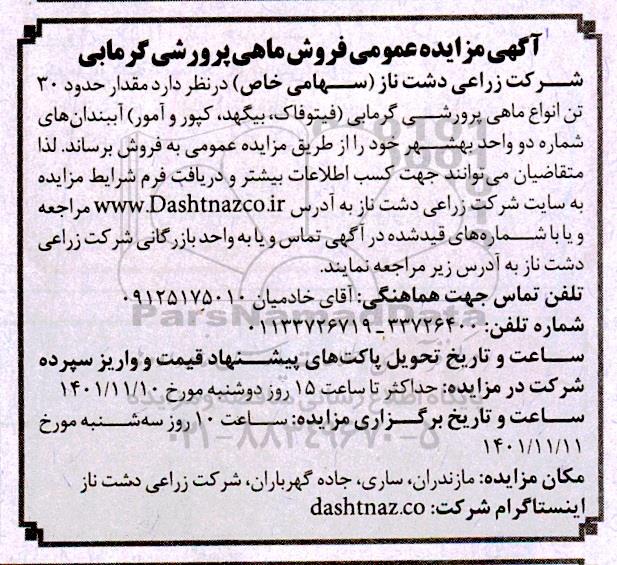 آگهی مزایده عمومی فروش ماهی پرورشی گرمابی
شرکت زراعی دشت ناز (سهامی خاص) درنظر دارد مقدار حدود ۳۰
تن انواع ماهی پرورشی گرمابی (فیتوفاک، بیگهد، کپور و آمور) آببندان‌های
شماره دو واحد بهشهر خود را از طریق مزایده عمومی به فروش برساند. لذا
متقاضیان می‌توانند جهت کسب اطلاعات بیشتر و دریافت فرم شرایط مزایده
به سایت شرکت زراعی دشت ناز به آدرس www.Dashtnazco.ir مراجعه
و یا با شماره‌های قیدشده در آگهی تماس و یا به واحد بازرگانی شرکت زراعی
دشت ناز به آدرس زیر مراجعه نمایند.
تلفن تماس جهت هماهنگی: آقای خادمیان ۰۹۱۲۵۱۷۵۰۱۰
شماره تلفن: ۳۳۷۲۶۴۰۰ ـ ۰۱۱۳۳۷۲۶۷۱۹
ساعت و تاریخ تحویل پاکت‌های پیشنهاد قیمت و واریز سپرده
شرکت در مزایده: حداکثر تا ساعت ۱۵ روز دوشنبه مورخ ۱۴۰۱/۱۱/۱۰
ساعت و تاریخ برگزاری مزایده: ساعت ۱۰ روز سه‌شنبه مورخ
۱۴۰۱/۱۱/۱۱
مکان مزایده: مازندران، ساری، جاده گهرباران، شرکت زراعی دشت ناز
اینستاگرام شرکت: dashtnaz.co
ParsNamadData
۰۲۱-۸۸۳۴۹۶۷۰-۵